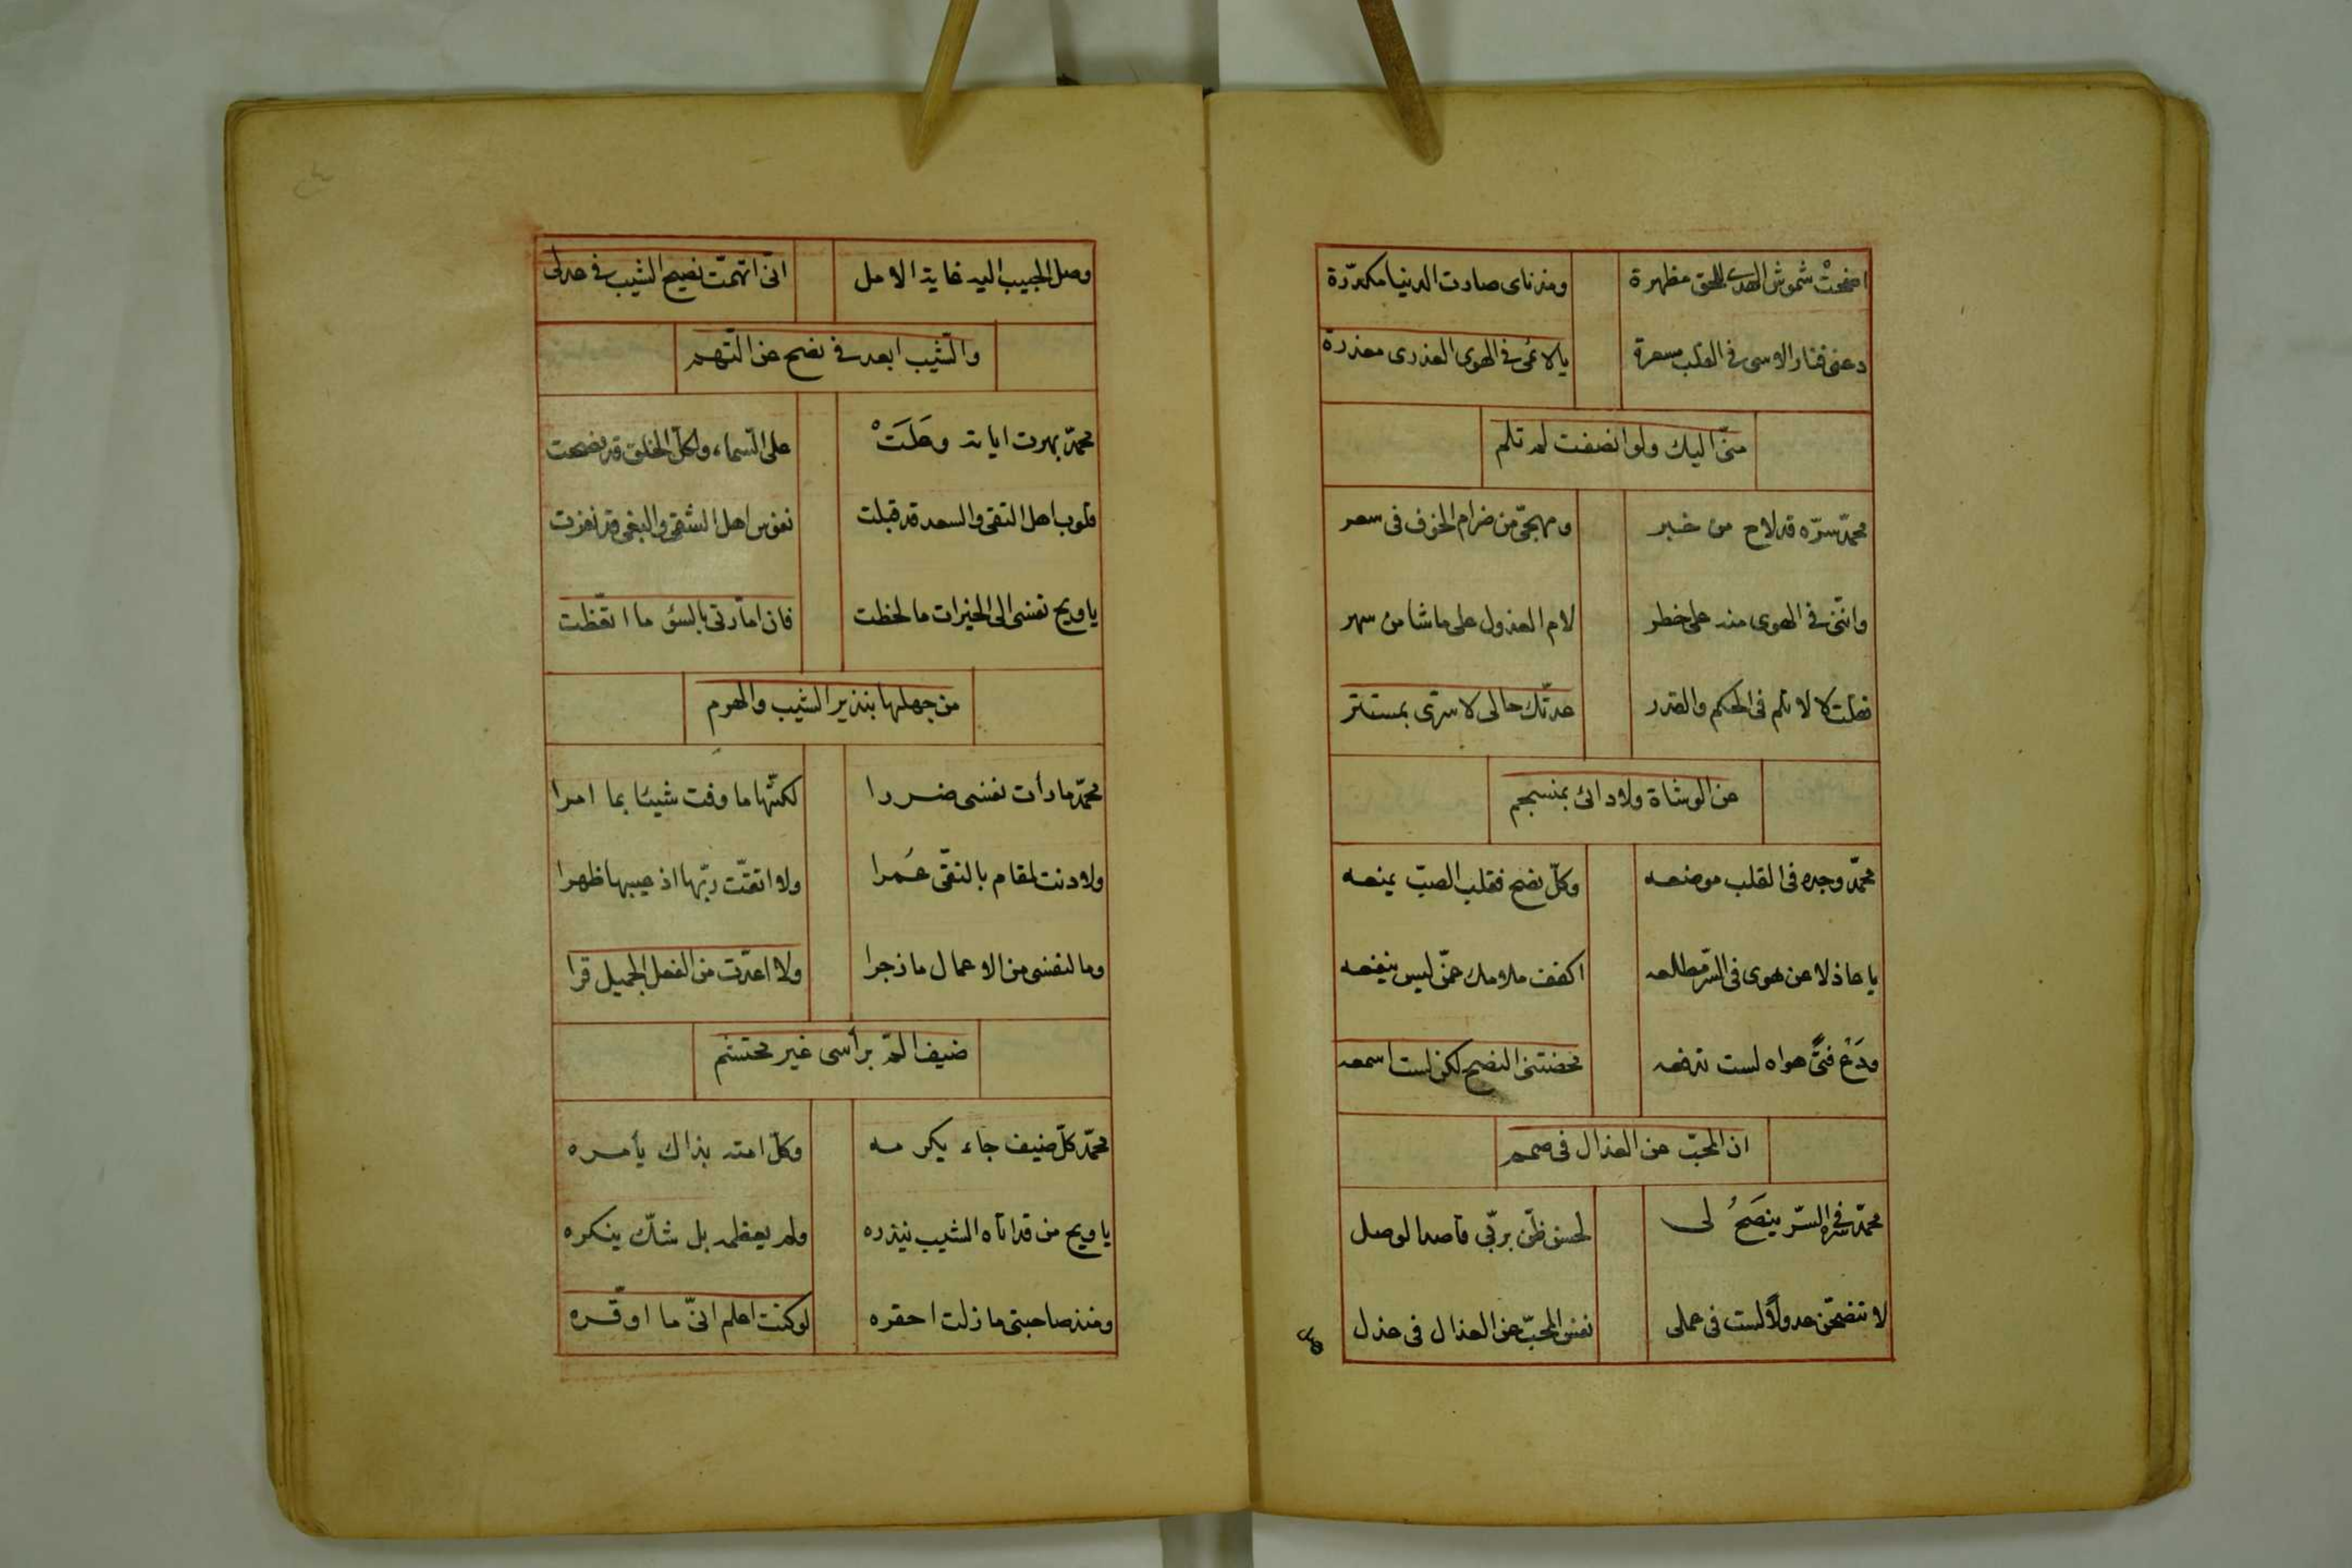 اضحتْ شموش الهدى للحق مظهرة ومذ ناى صارت الدنيا مكدّرة
دعنى فنار الاسى فى القلب مسعرة يا لائمى فى الهوى العذرى معذرة
منّى اليك ولو انصفت لم تلم
محمدّ سرّه قد لاح من خبر ومهجتى من ضرام الخوف فى سعر
وانّنى فى الهوى منه على خطر لام العذول على ما شا من سهر
فقلت لا لا تلم فى الحكم والقدر عدتّك حالى لا سرّى بمستتر
عن الوشاة ولا دائى بمنسجم
محمّد وجده فى القلب موضعه وكلّ نصح فقلب الصبّ يمنعه
يا عاذلا عن هوى فى السّر مطلعه اكفف ملامك عمّن ليس ينفعه
ودَعْ فتىً هواه لست تدفعه محضتنى النصح لكن لست اسمعه
ان المحبّ عن العذال فى صمم
محمّد سرّه فى السّر ينصَحُ لى لحسن ظنّى بربّى قاصدا لوصل
لا تنصحّن عدولاً لست فى عملى نفس المحبّ عن العذال فى عذل
وصل الحبيب اليه غاية الامل انّى اتهمت نصيح الشيب فى عدلى
والشّيب ابعد فى نصح عن التّهم
محمدّ بهرت اياته وعَلَتْ على السّماء ولكلّ الخلق قد نصحت
قلوب اهل التقى والسعد قد قبلت نفوس اهل الشقى والبغى قد نفرت
يا ويح نفسى الى الخيرات ما لحظت فان امّارتى بالسئ ما اتّعظت
من جهلها بنذير الشيب والهرم
محمدّ ما رأت نفسى ضررا لكنّها ما وفت شيئا بما امرا
ولا دنت لمقام بالتقىّ عُمرا ولا اتقتّ ربّها اذ عيبها ظهرا
وما لنفسى من الاعمال ما زجرا ولا اعدّت من الفعل الجميل قرا
ضيف المّ برأسى غير محتشم
محمّد كلّ ضيف جاء يكرمه وكلّ امته بذاك يأمره
يا ويح من قد اتاه الشيب نيذره ولم يعظمه بل شكّ ينكره
ومنذ صاحبتى ما زلت احقره لو كنت اعلم انىّ ما اوقّره